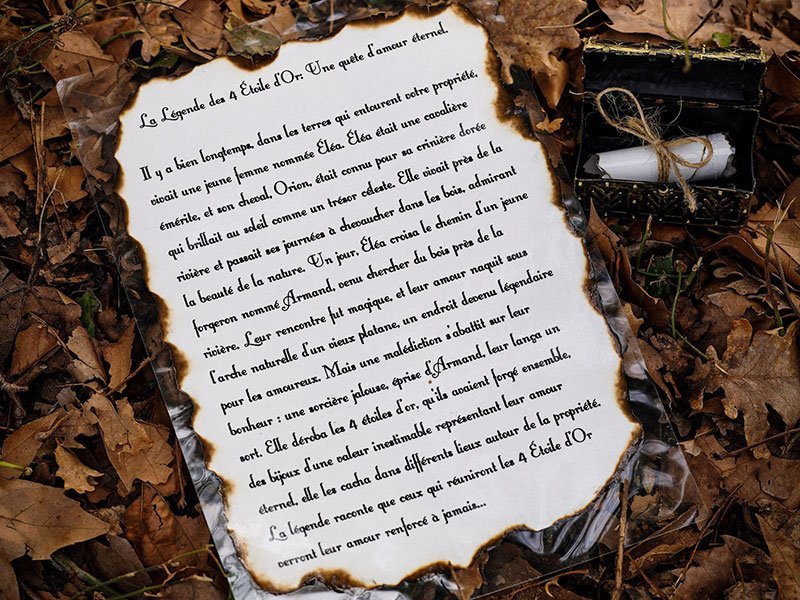 La Légende des 4 Étoile d'Or: Une quête d'amour éternel.
Il y a bien longtemps, dans les terres qui entourent votre propriété,
vivait une jeune femme nommée Éléa. Éléa était une cavalière
émérite, et son cheval, Orion, était connu pour sa crinière dorée
qui brillait au soleil comme un trésor céleste. Elle vivait près de la
rivière et passait ses journées à chevaucher dans les bois, admirant
la beauté de la nature. Un jour, Éléa croisa le chemin d'un jeune
forgeron nommé Armand, venu chercher du bois près de la
rivière. Leur rencontre fut magique, et leur amour naquit sous
l'arche naturelle d'un vieux platane, un endroit devenu légendaire
pour les amoureux. Mais une malédiction s'abattit sur leur
bonheur : une sorcière jalouse, éprise d'Armand, leur lança un
sort. Elle déroba les 4 étoiles d'or, qu'ils avaient forgé ensemble,
des bijoux d'une valeur inestimable représentant leur amour
éternel, elle les cacha dans différents lieux autour de la propriété.
La légende raconte que ceux qui réuniront les 4 Étoile d'Or
verront leur amour renforcé à jamais...